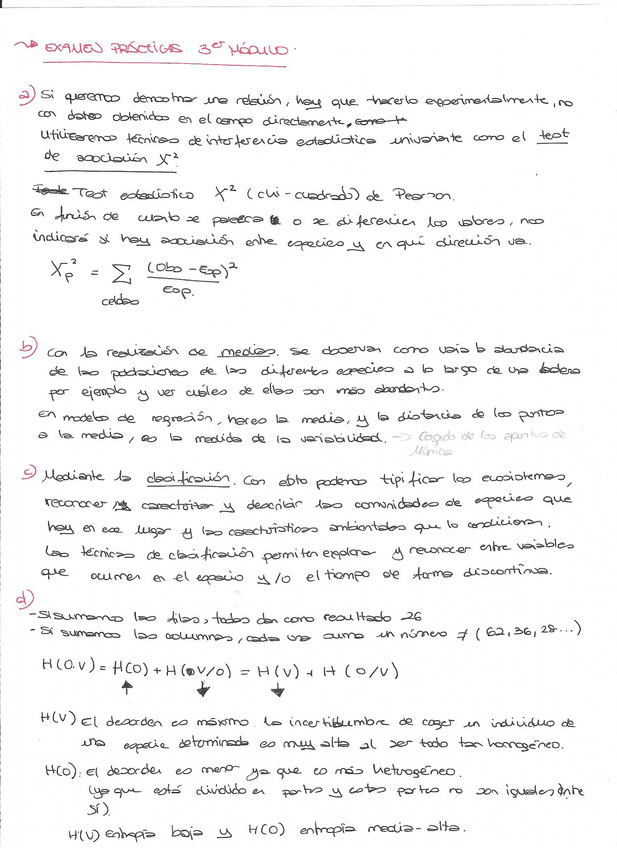 → EXAMEN PRÁCTICAS 3er MÓDULO.
a) Si queremos demostrar una relación, hay que hacerlo experimentalmente, no
con datos obtenidos en el campo directamente,
Utilizaremos técnicas de interferencia estadística univariante como el test
de asociación X²
Test estadístico X² (chi-cuadrado) de Pearson.
En función de cuanto se parezca o se diferencien los valores, nos
indicará si hay asociación entre especies y en qué dirección va.
Xp² = Σ (Obs - Esp)²
Esp.
celdas
b) Con la realización de medias. Se observan como varía la abundancia
de las poblaciones de las diferentes especies a lo largo de una ladera
por ejemplo y ver cuáles de ellas son más abundants.
En modelo de regresión, haces la media, y la distancia de los puntos
a la media, es la medida de la variabilidad. → Cogido de los apuntes de
Mónica
c) Mediante la clasificación. Con esto podemos tipificar los ecosistemas,
reconocer caracterizar y describir las comunidades de especies que
hay en ese lugar y las características ambientales que lo condicionan.
Las técnicas de clasificación permiten explorar y reconocer entre variables
que ocurren en el espacio y/o el tiempo de forma discontinua.
d)
- Si sumamos las filas, todas dan como resultado 26
- Si sumamos las columnas, cada una suma un número ≠ (62, 36, 28...)
H(O.V) = H(O) + H(V/O) = H(V) + H(O/V)
↑ ↓ ↓
H(V) El desorden es máximo. La incertidumbre de coger un individuo de
una especie determinada es muy alta al ser todo tan homogéneo.
H(O): El desorden es menor ya que es más heterogéneo.
(ya que está dividido en partes y estas partes no son iguales entre
sí).
H(V) Entropía baja y H(O) entropía media-alta.